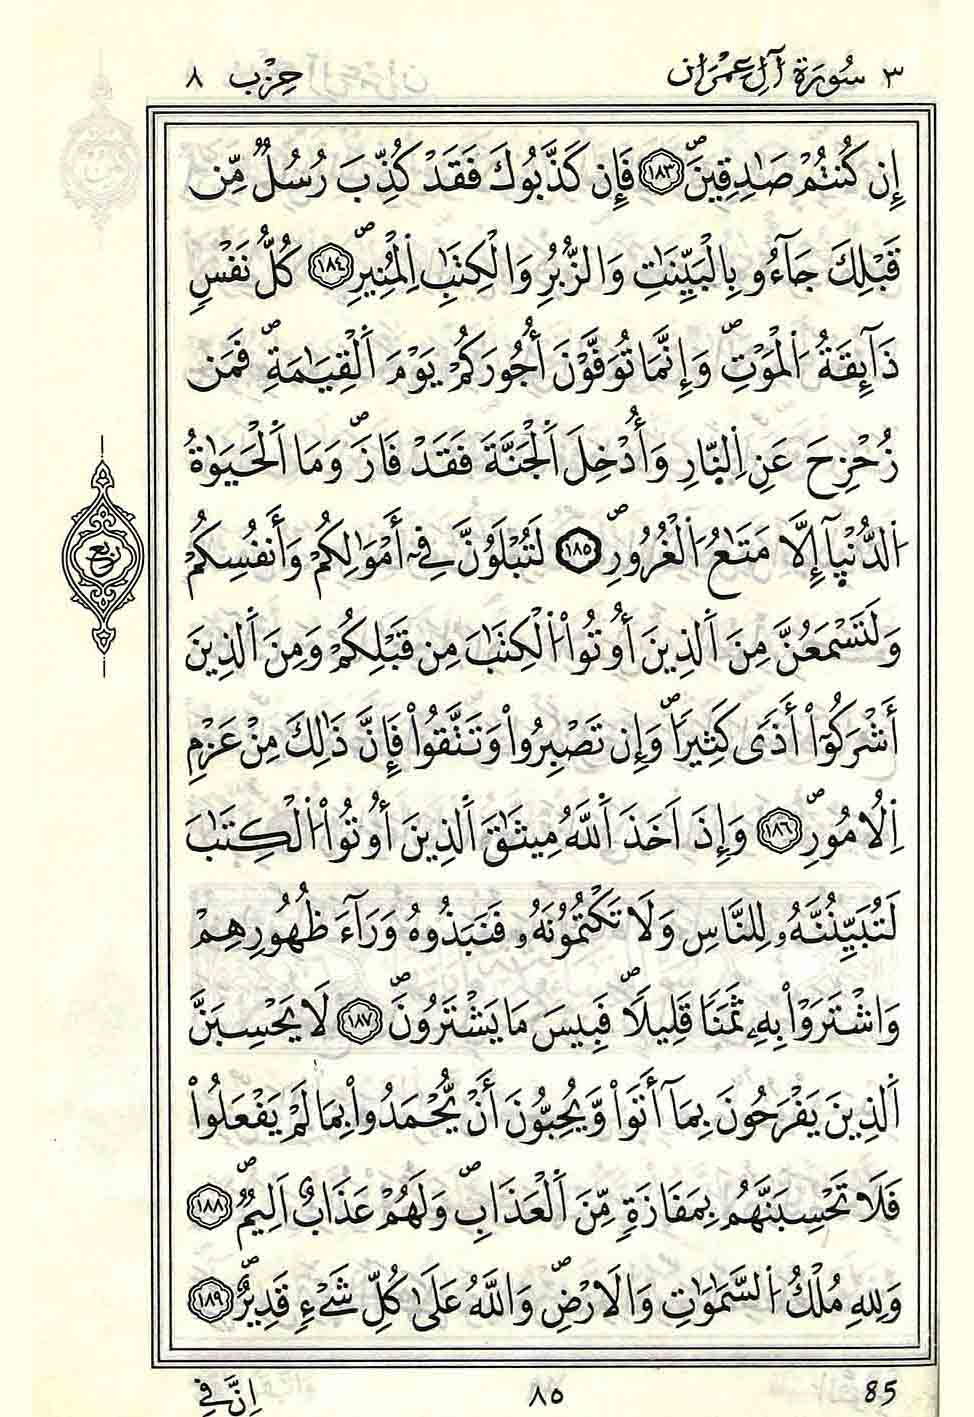 ٣ سُورَة آلِ عِمْرَان حِزْب ٨
إِن كُنتُمْ صَٰدِقِينَۖ ١٨٣ فَإِن كَذَّبُوكَ فَقَدْ كُذِّبَ رُسُلٌ مِّن
قَبْلِكَ جَآءُو بِالْبَيِّنَٰتِ وَالزُّبُرِ وَالْكِتَٰبِ اِ۬لْمُنِيرِۖ ١٨٤ كُلُّ نَفْسٍ
ذَآئِقَةُ اُ۬لْمَوْتِۖ وَإِنَّمَا تُوَفَّوْنَ أُجُورَكُمْ يَوْمَ اَ۬لْقِيَٰمَةِۖ فَمَن
زُحْزِحَ عَنِ اِ۬لنَّارِ وَأُدْخِلَ اَ۬لْجَنَّةَ فَقَدْ فَازَۖ وَمَا اَ۬لْحَيَوٰةُ
اُ۬لدُّنْيَآ إِلَّا مَتَٰعُ اُ۬لْغُرُورِۖ ١٨٥ لَتُبْلَوُنَّ فِےٓ أَمْوَٰلِكُمْ وَأَنفُسِكُمْ
وَلَتَسْمَعُنَّ مِنَ اَ۬لذِينَ أُوتُواْ اُ۬لْكِتَٰبَ مِن قَبْلِكُمْ وَمِنَ اَ۬لذِينَ
أَشْرَكُوٓاْ أَذىً كَثِيراًۖ وَإِن تَصْبِرُواْ وَتَتَّقُواْ فَإِنَّ ذَٰلِكَ مِنْ عَزْمِ
اِ۬لُامُورِۖ ١٨٦ وَإِذَ اَخَذَ اَ۬للَّهُ مِيثَٰقَ اَ۬لذِينَ أُوتُواْ اُ۬لْكِتَٰبَ
لَتُبَيِّنُنَّهُۥ لِلنَّاسِ وَلَا تَكْتُمُونَهُۥ فَنَبَذُوهُ وَرَآءَ ظُهُورِهِمْ
وَاشْتَرَوْاْ بِهِۦ ثَمَناً قَلِيلاًۖ فَبِيسَ مَا يَشْتَرُونَۖ ١٨٧ لَا يَحْسِبَنَّ
اَ۬لذِينَ يَفْرَحُونَ بِمَآ أَتَواْ وَّيُحِبُّونَ أَنْ يُّحْمَدُواْ بِمَا لَمْ يَفْعَلُواْ
فَلَا تَحْسِبَنَّهُم بِمَفَازَةٍ مِّنَ اَ۬لْعَذَابِۖ وَلَهُمْ عَذَابٌ اَلِيمٌۖ ١٨٨
وَلِلهِ مُلْكُ اُ۬لسَّمَٰوَٰتِ وَالَارْضِۖ وَاللَّهُ عَلَىٰ كُلِّ شَےْءٍ قَدِيرٌۖ ١٨٩
ربع
إِنَّ فِے ٨٥ 85